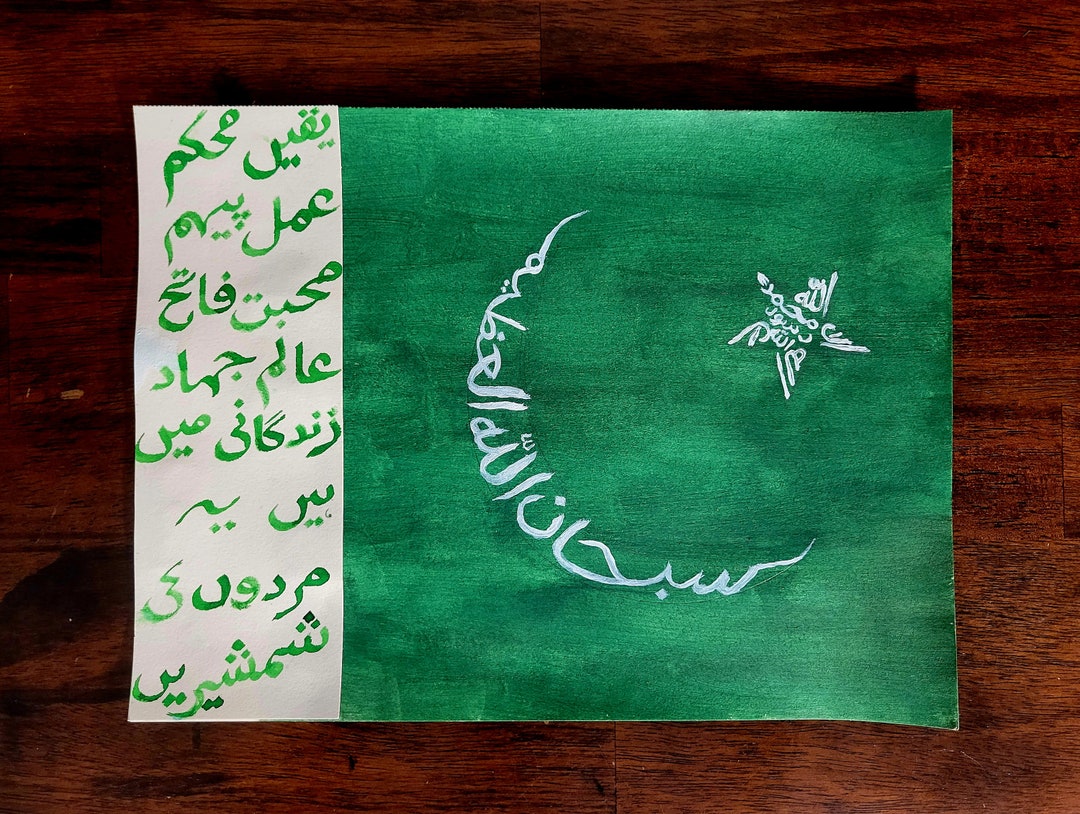 یقیں محکم
عمل پیہم
محبت فاتح
عالم جہاد
زندگانی میں
ہیں یہ
مردوں کی
شمشیریں
سبحان اللہ العظیم
اللہ
محمد
رسول
اللہ